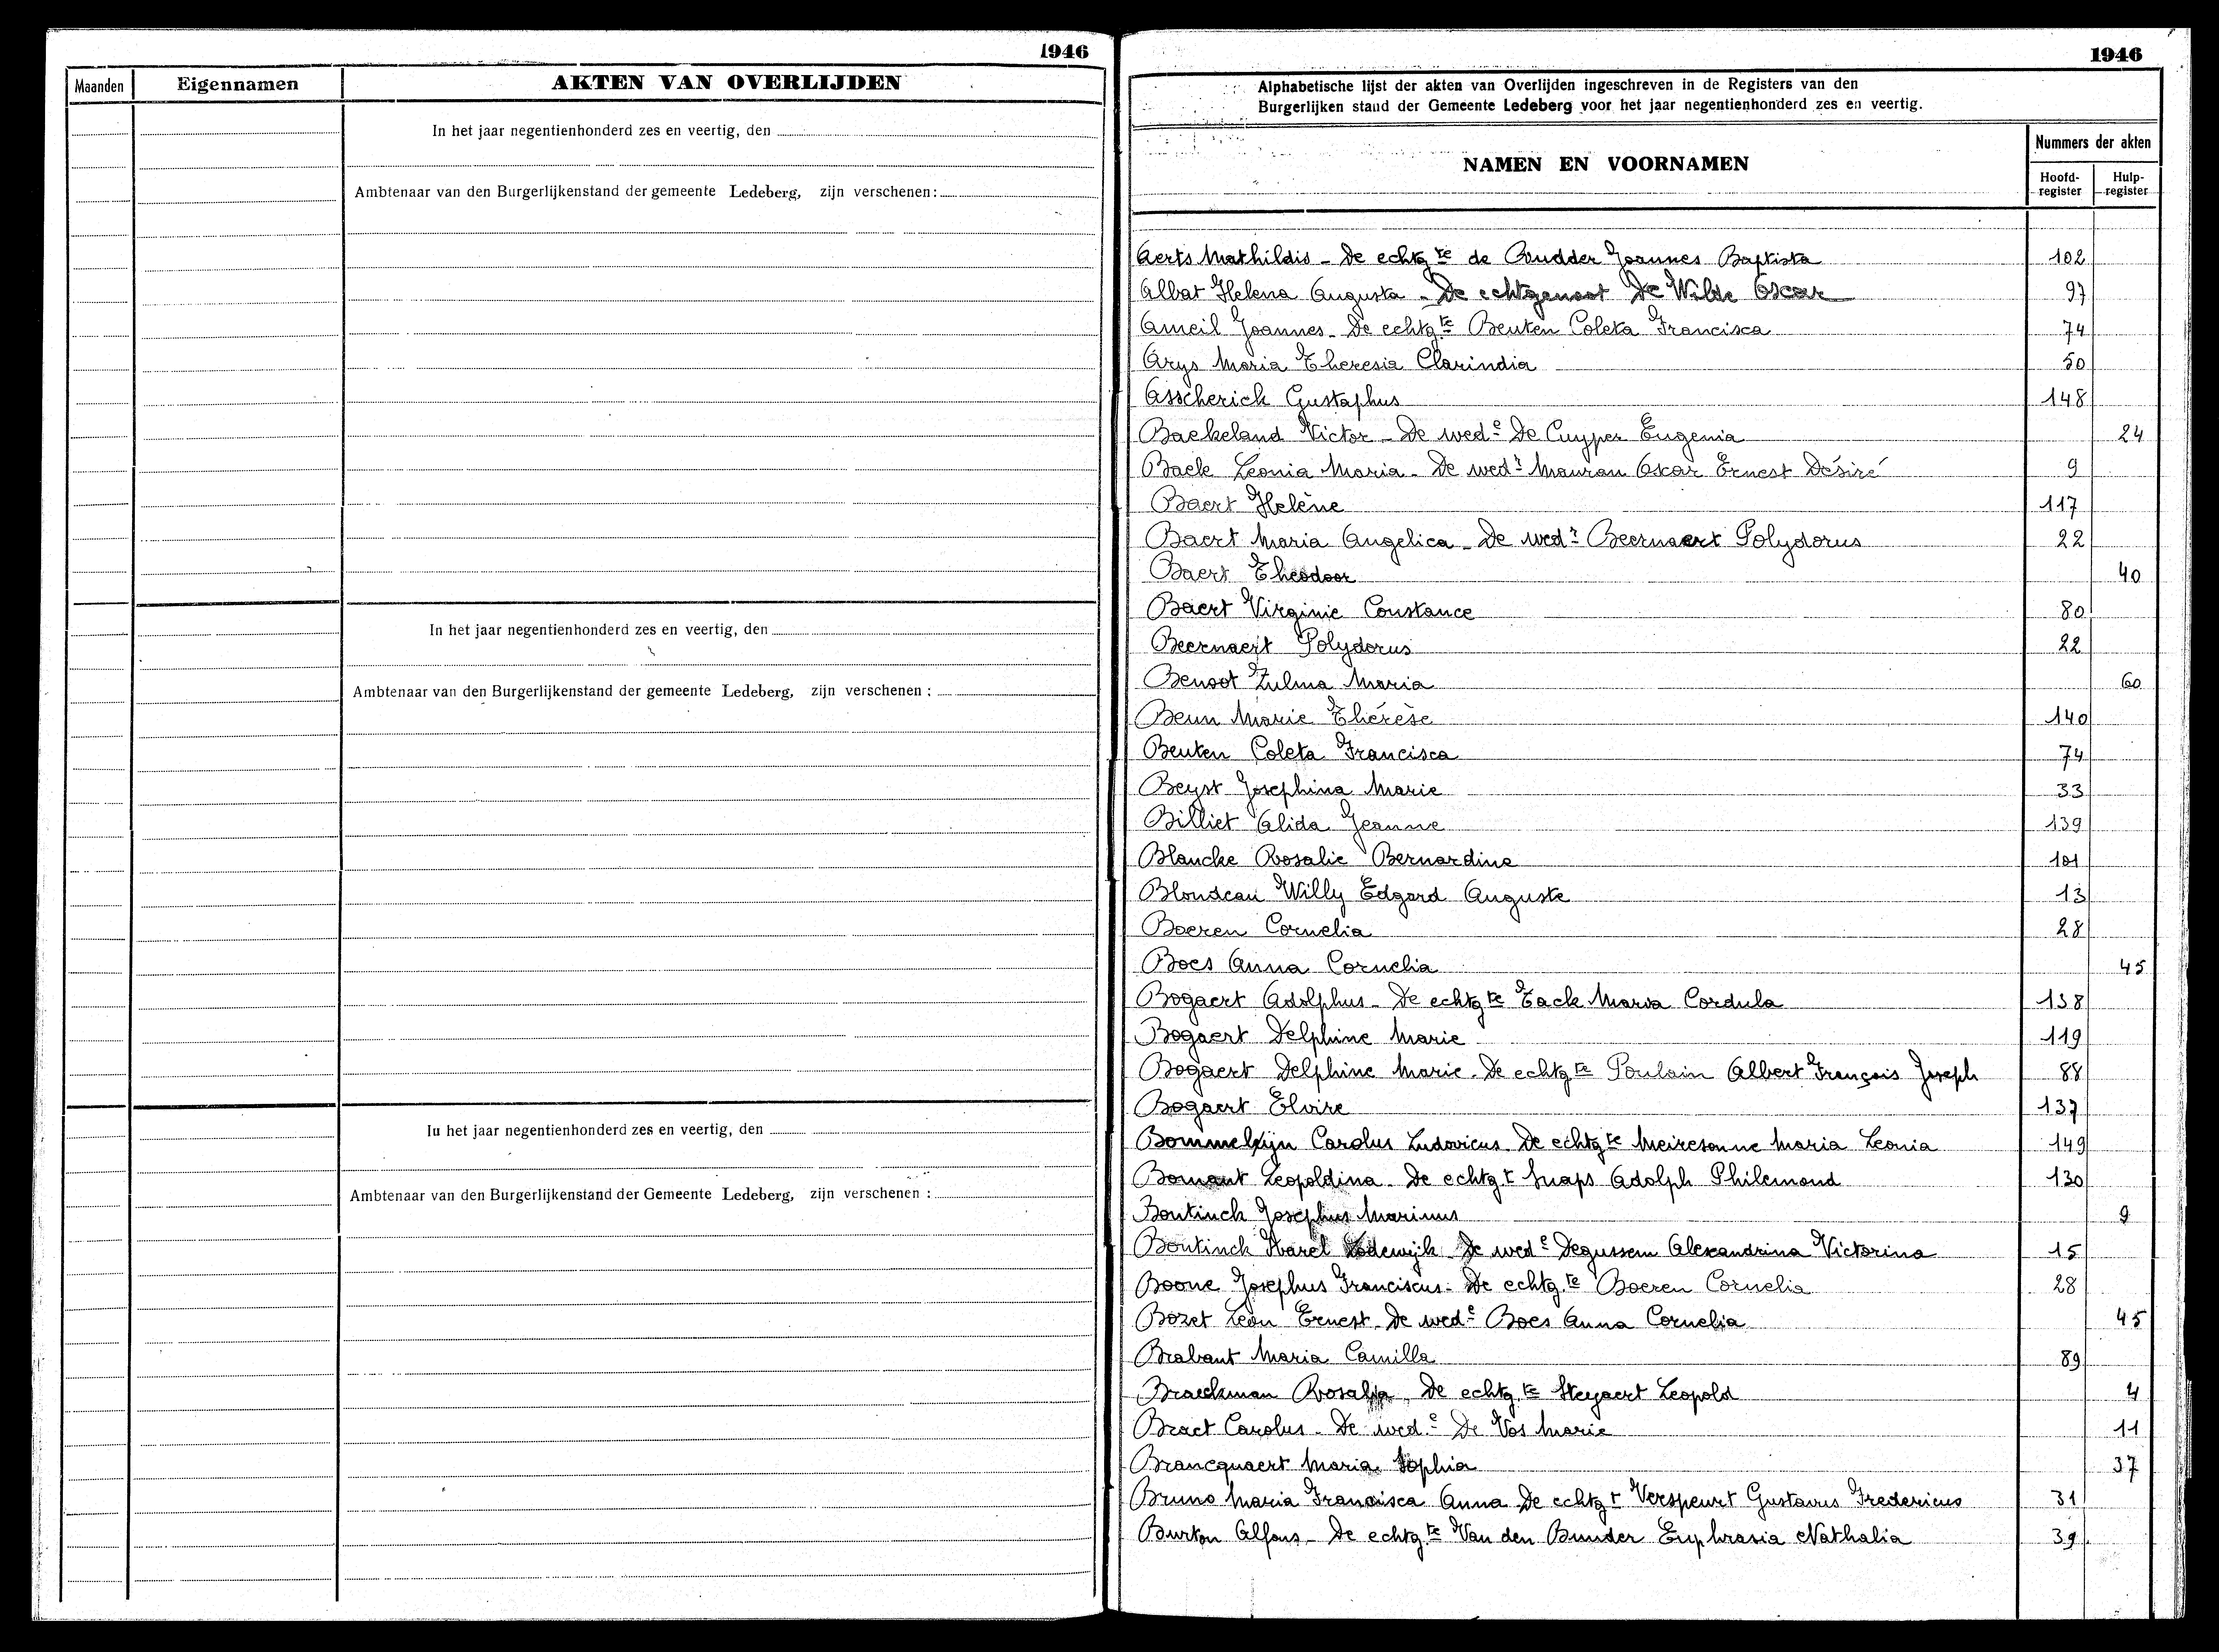 1946
Maanden Eigennamen AKTEN VAN OVERLIJDEN
In het jaar negentienhonderd zes en veertig, den
Ambtenaar van den Burgerlijkenstand der gemeente Ledeberg, zijn verschenen:
In het jaar negentienhonderd zes en veertig, den
Ambtenaar van den Burgerlijkenstand der gemeente Ledeberg, zijn verschenen :
In het jaar negentienhonderd zes en veertig, den
Ambtenaar van den Burgerlijkenstand der Gemeente Ledeberg, zijn verschenen :
1946
Alphabetische lijst der akten van Overlijden ingeschreven in de Registers van den
Burgerlijken stand der Gemeente Ledeberg voor het jaar negentienhonderd zes en veertig.
NAMEN EN VOORNAMEN
Nummers der akten
Hoofd-register Hulp-register
Aerts Mathildis - De echtgte de Rudder Joannes Baptista 102
Albat Helena Augusta - De echtgenoot De Wilde Oscar 97
Ameil Joannes - De echtgte Beuten Coleta Francisca 74
Arys Maria Theresia Clarindia 50
Asscherick Gustaphus 148
Baekeland Victor - De wede De Cuyper Eugenia 24
Baele Leonia Maria - De wedr Mauran Oskar Ernest Désiré 9
Baert Helène 117
Baert Maria Angelica - De wedr Beernaert Polydorus 22
Baert Theodoor 40
Baert Virginie Constance 80
Beernaert Polydorus 22
Benoot Zulma Maria 60
Beun Marie Thérèse 140
Beuten Coleta Francisca 74
Beyst Josephina Marie 33
Billiet Alida Jeanne 139
Blancke Rosalie Bernardine 101
Blondeau Willy Edgard Auguste 13
Boeren Cornelia 28
Boes Anna Cornelia 45
Bogaert Adolphus - De echtgte Tack Maria Cordula 138
Bogaert Delphine Marie 119
Bogaert Delphine Marie - De echtgte Poulain Albert François Joseph 88
Bogaert Elvire 137
Bommelyn Carolus Ludovicus - De echtgte Meiresonne Maria Leonia 149
Bomant Leopoldina - De echtgt Snaps Adolph Philemond 130
Bontinck Josephus Marinus 9
Bontinck Karel Lodewijk De wede Degussem Alexandrina Victorina 15
Boone Josephus Franciscus - De echtgte Boeren Cornelia 28
Bozet Leon Ernest - De wede Boes Anna Cornelia 45
Brabant Maria Camilla 89
Braeckman Rosalia - De echtgte Steyaert Leopold 4
Braet Carolus - De wede De Vos Marie 11
Brancquaert Maria Sophia 37
Bruno Maria Francisca Anna De echtgt Verspeurt Gustavus Fredericus 31
Burton Alfons - De echtgte Van den Bunder Euphrasia Nathalia 39